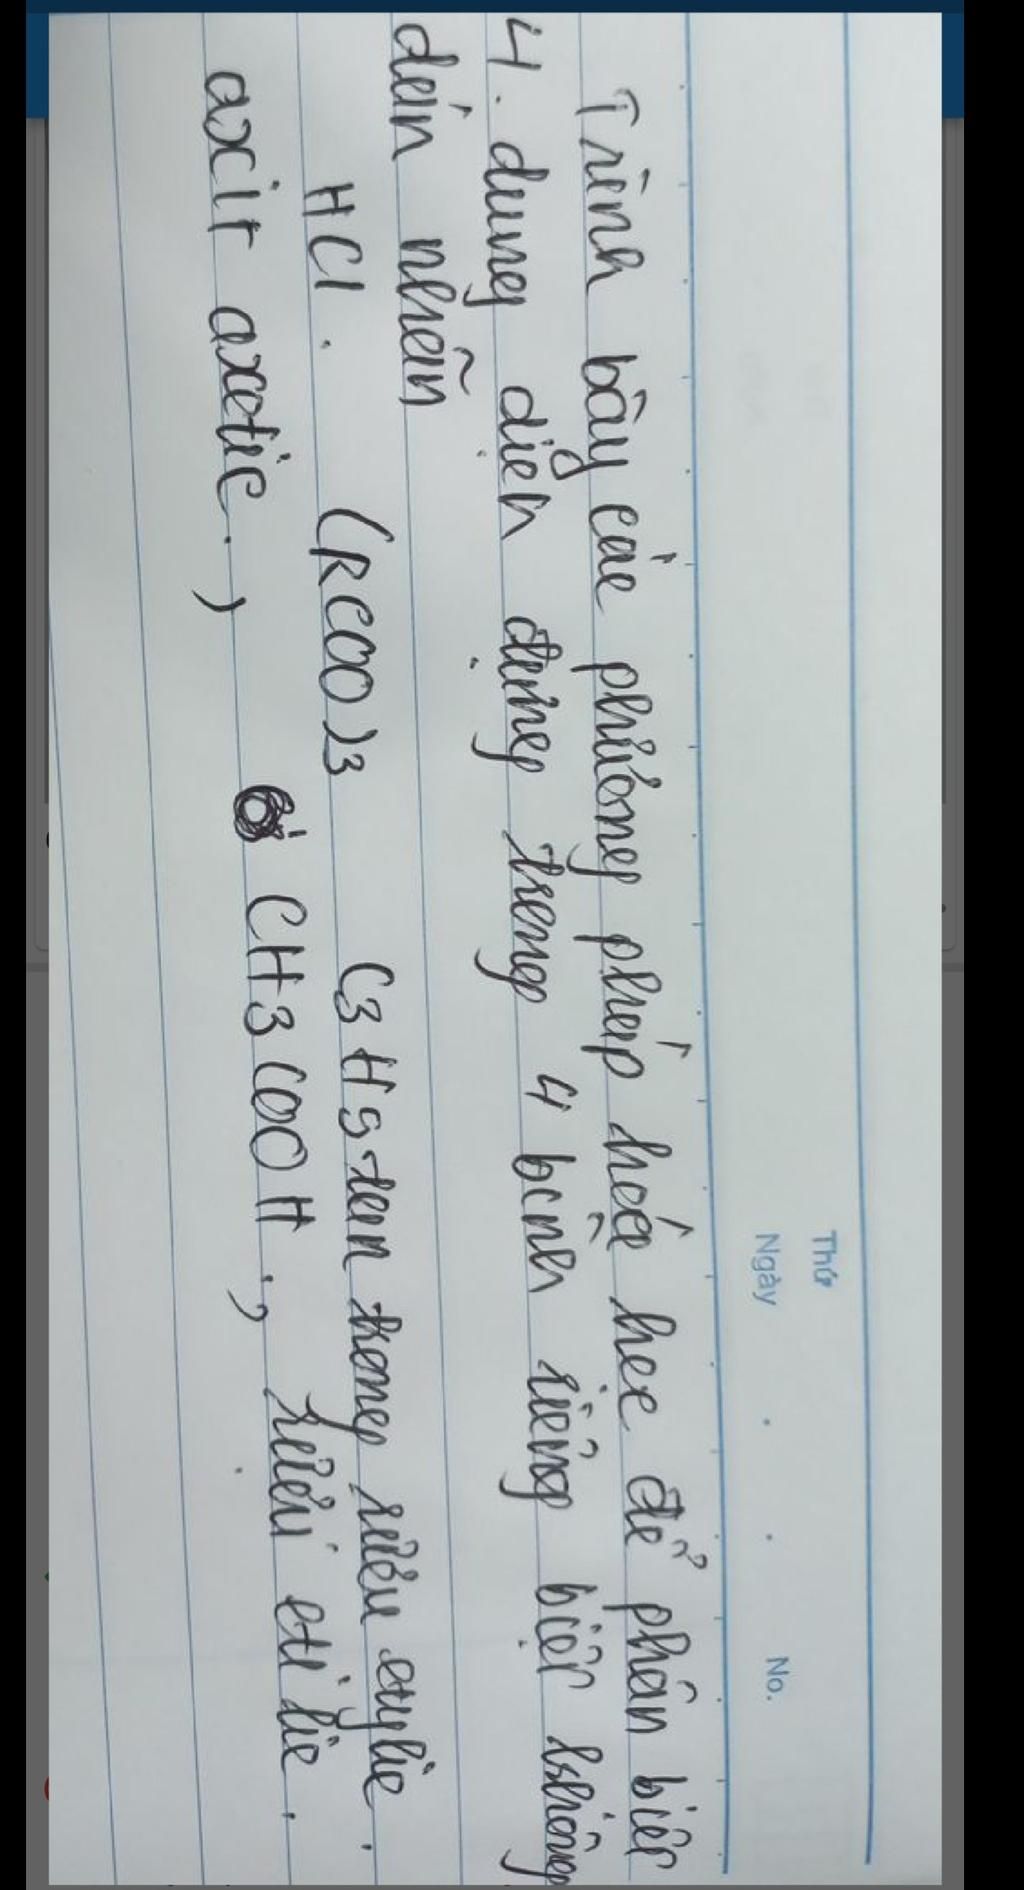 Thứ
Ngày . . No.
Trình bày các phương pháp hoá học để phân biệt
4. dung dịch đựng trong 4 bình riêng biệt không
dán nhãn
HCl. (RCOO)3 C3H5 tan trong rượu etylic.
axit axetic.) CH3COOH., rượu etilic.